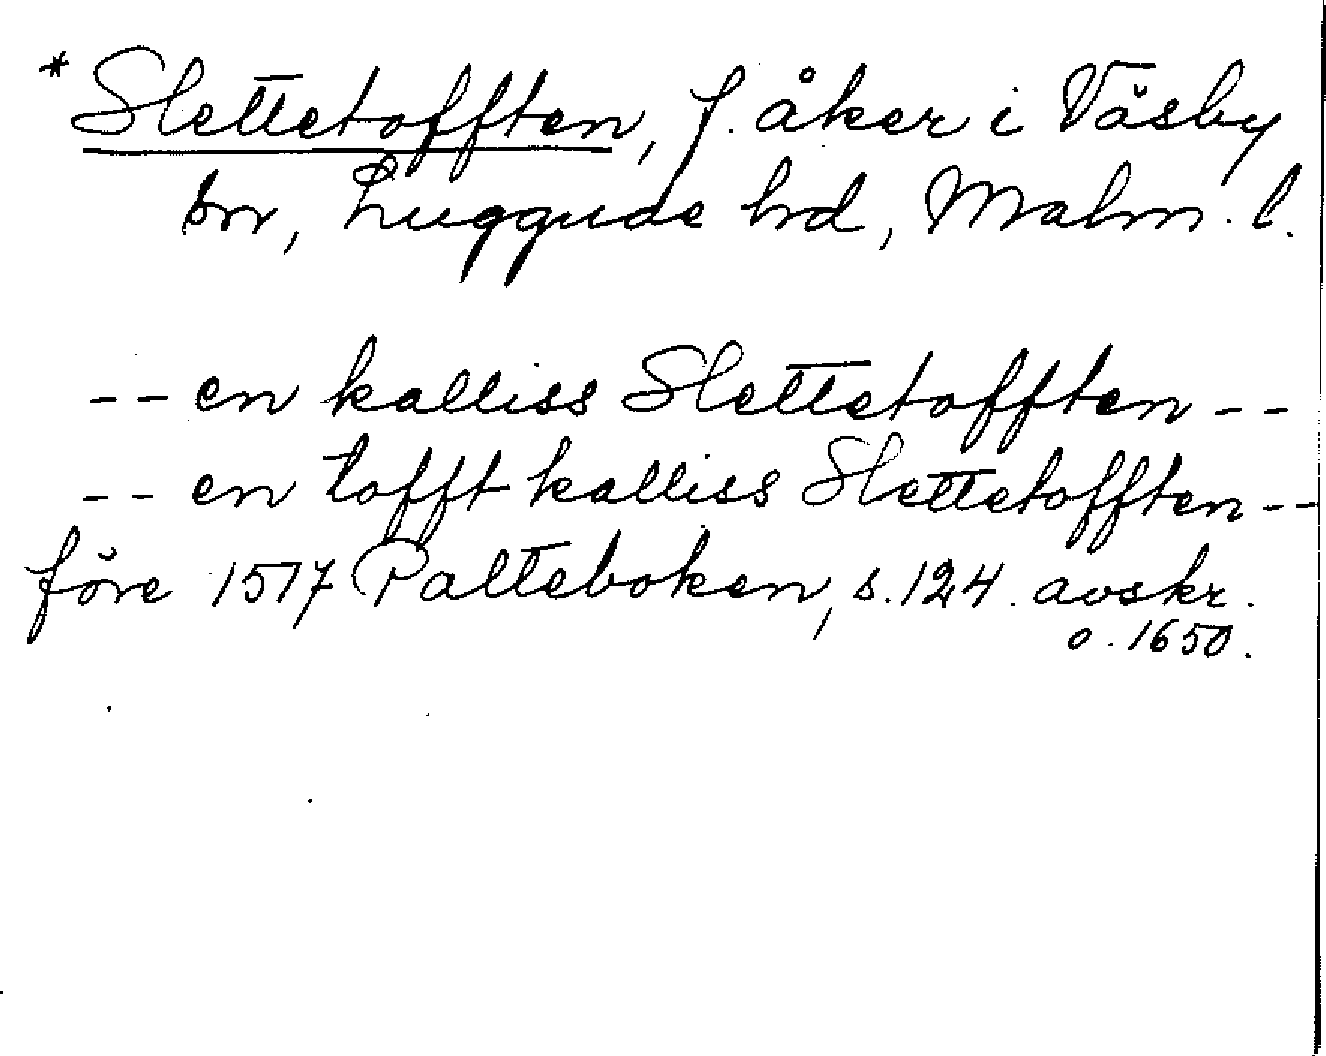 *Slettetofften, f. åker i Väsby
sn, Luggude hd, Malm. l.
-- en kalliss Slettetofften --
-- en tofft kalliss Slettetofften --
före 1517 Palteboken, s. 124. avskr.
o. 1650.